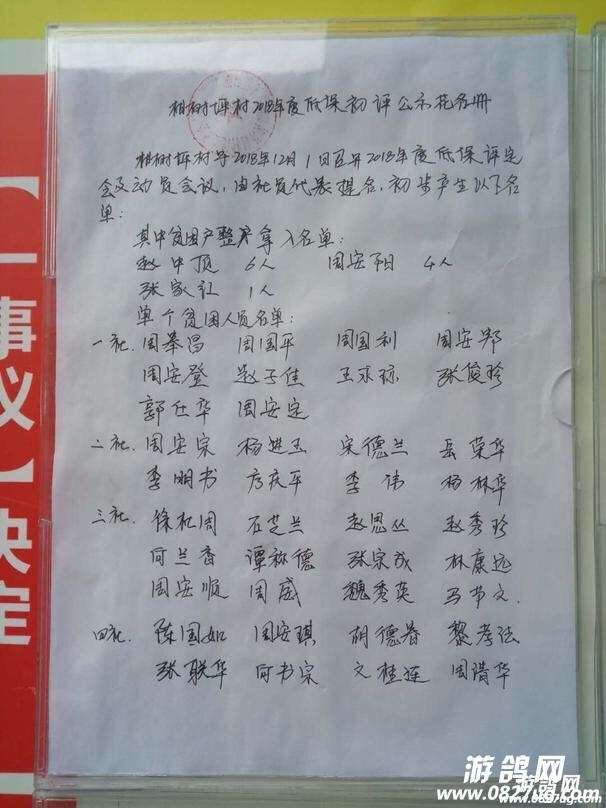 柏树坪村2018年度低保初评公示花名册
柏树坪村于2018年12月1日召开2018年度低保评定
会及动员会议，由社员代表提名，初步产生以下名
单：
其中贫困户整户拿入名单：
赵中顶 6人 周安阳 4人
张家让 1人
单个贫困人员名单：
一社. 周举昌 周国平 周国利 周安郑
周安登 赵子佳 王术琼 张俊珍
郭仕华 周安定
二社. 周安宗 杨进玉 宋德兰 岳荣华
李明书 方庆平 李伟 杨林华
三社. 徐松周 石芝兰 赵思丛 赵秀珍
何兰香 谭称德 张宗成 林康远
周安顺 周威 魏秀英 马节文.
四社. 陈国如 周安琪 胡德春 黎孝法
张联华 何书宗 文桂连 周清华
【一事一议】决定
游鸽网
www.0827ug.com